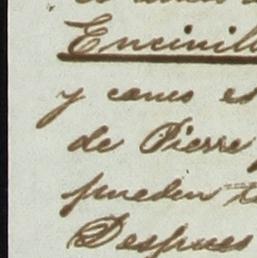 Encinill
y como es
de Pierre
pueden t
Despues